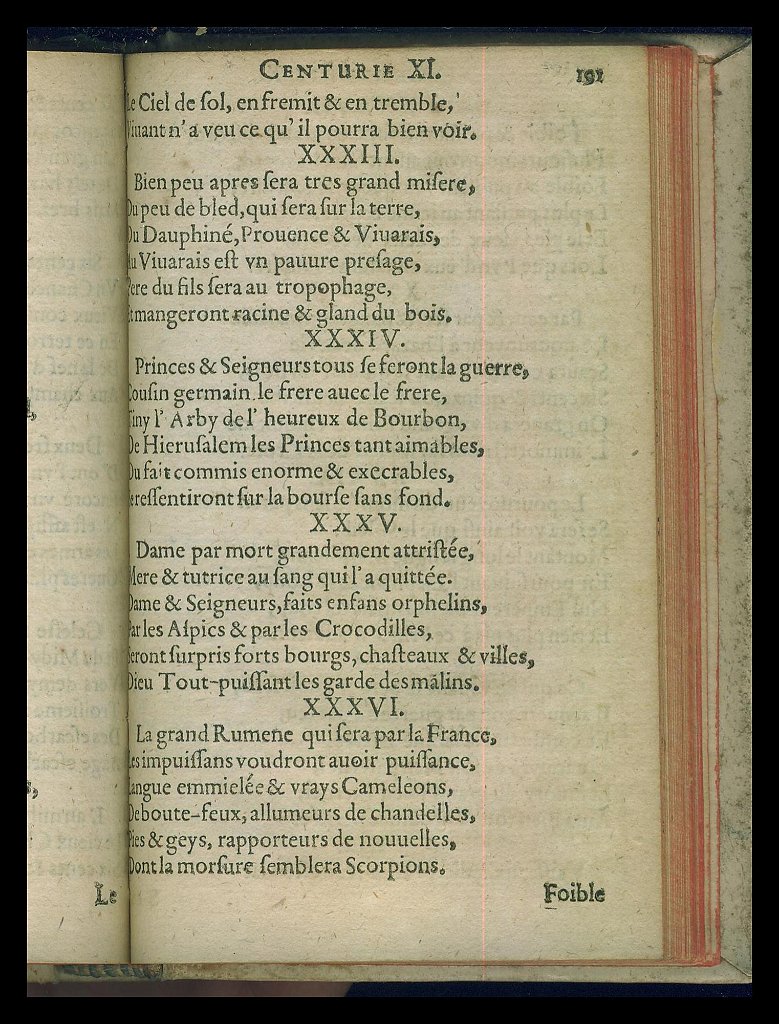 CENTURIE XI. 191
Le Ciel de ſol, en fremit & en tremble,
Viuant n'a veu ce qu'il pourra bien voir.
XXXIII.
Bien peu apres ſera tres grand miſere,
Du peu de bled, qui ſera ſur la terre,
Du Dauphiné, Prouence & Viuarais,
Au Viuarais eſt vn pauure preſage,
Pere du fils ſera au tropophage,
Et mangeront racine & gland du bois.
XXXIV.
Princes & Seigneurs tous ſe feront la guerre,
Couſin germain le frere auec le frere,
Finy l'Arby de l'heureux de Bourbon,
De Hieruſalem les Princes tant aimables,
Du fait commis enorme & execrables,
Se reſſentiront ſur la bourſe ſans fond.
XXXV.
Dame par mort grandement attriſtée,
Mere & tutrice au ſang qui l'a quittée.
Dame & Seigneurs, faits enfans orphelins,
Par les Aſpics & par les Crocodilles,
Seront ſurpris forts bourgs, chaſteaux & villes,
Dieu Tout-puiſſant les garde des malins.
XXXVI.
La grand Rumene qui ſera par la France,
Les impuiſſans voudront auoir puiſſance,
Langue emmielée & vrays Cameleons,
De boute-feux, allumeurs de chandelles,
Pies & geys, rapporteurs de nouuelles,
Dont la morſure ſemblera Scorpions.
Foible
Le